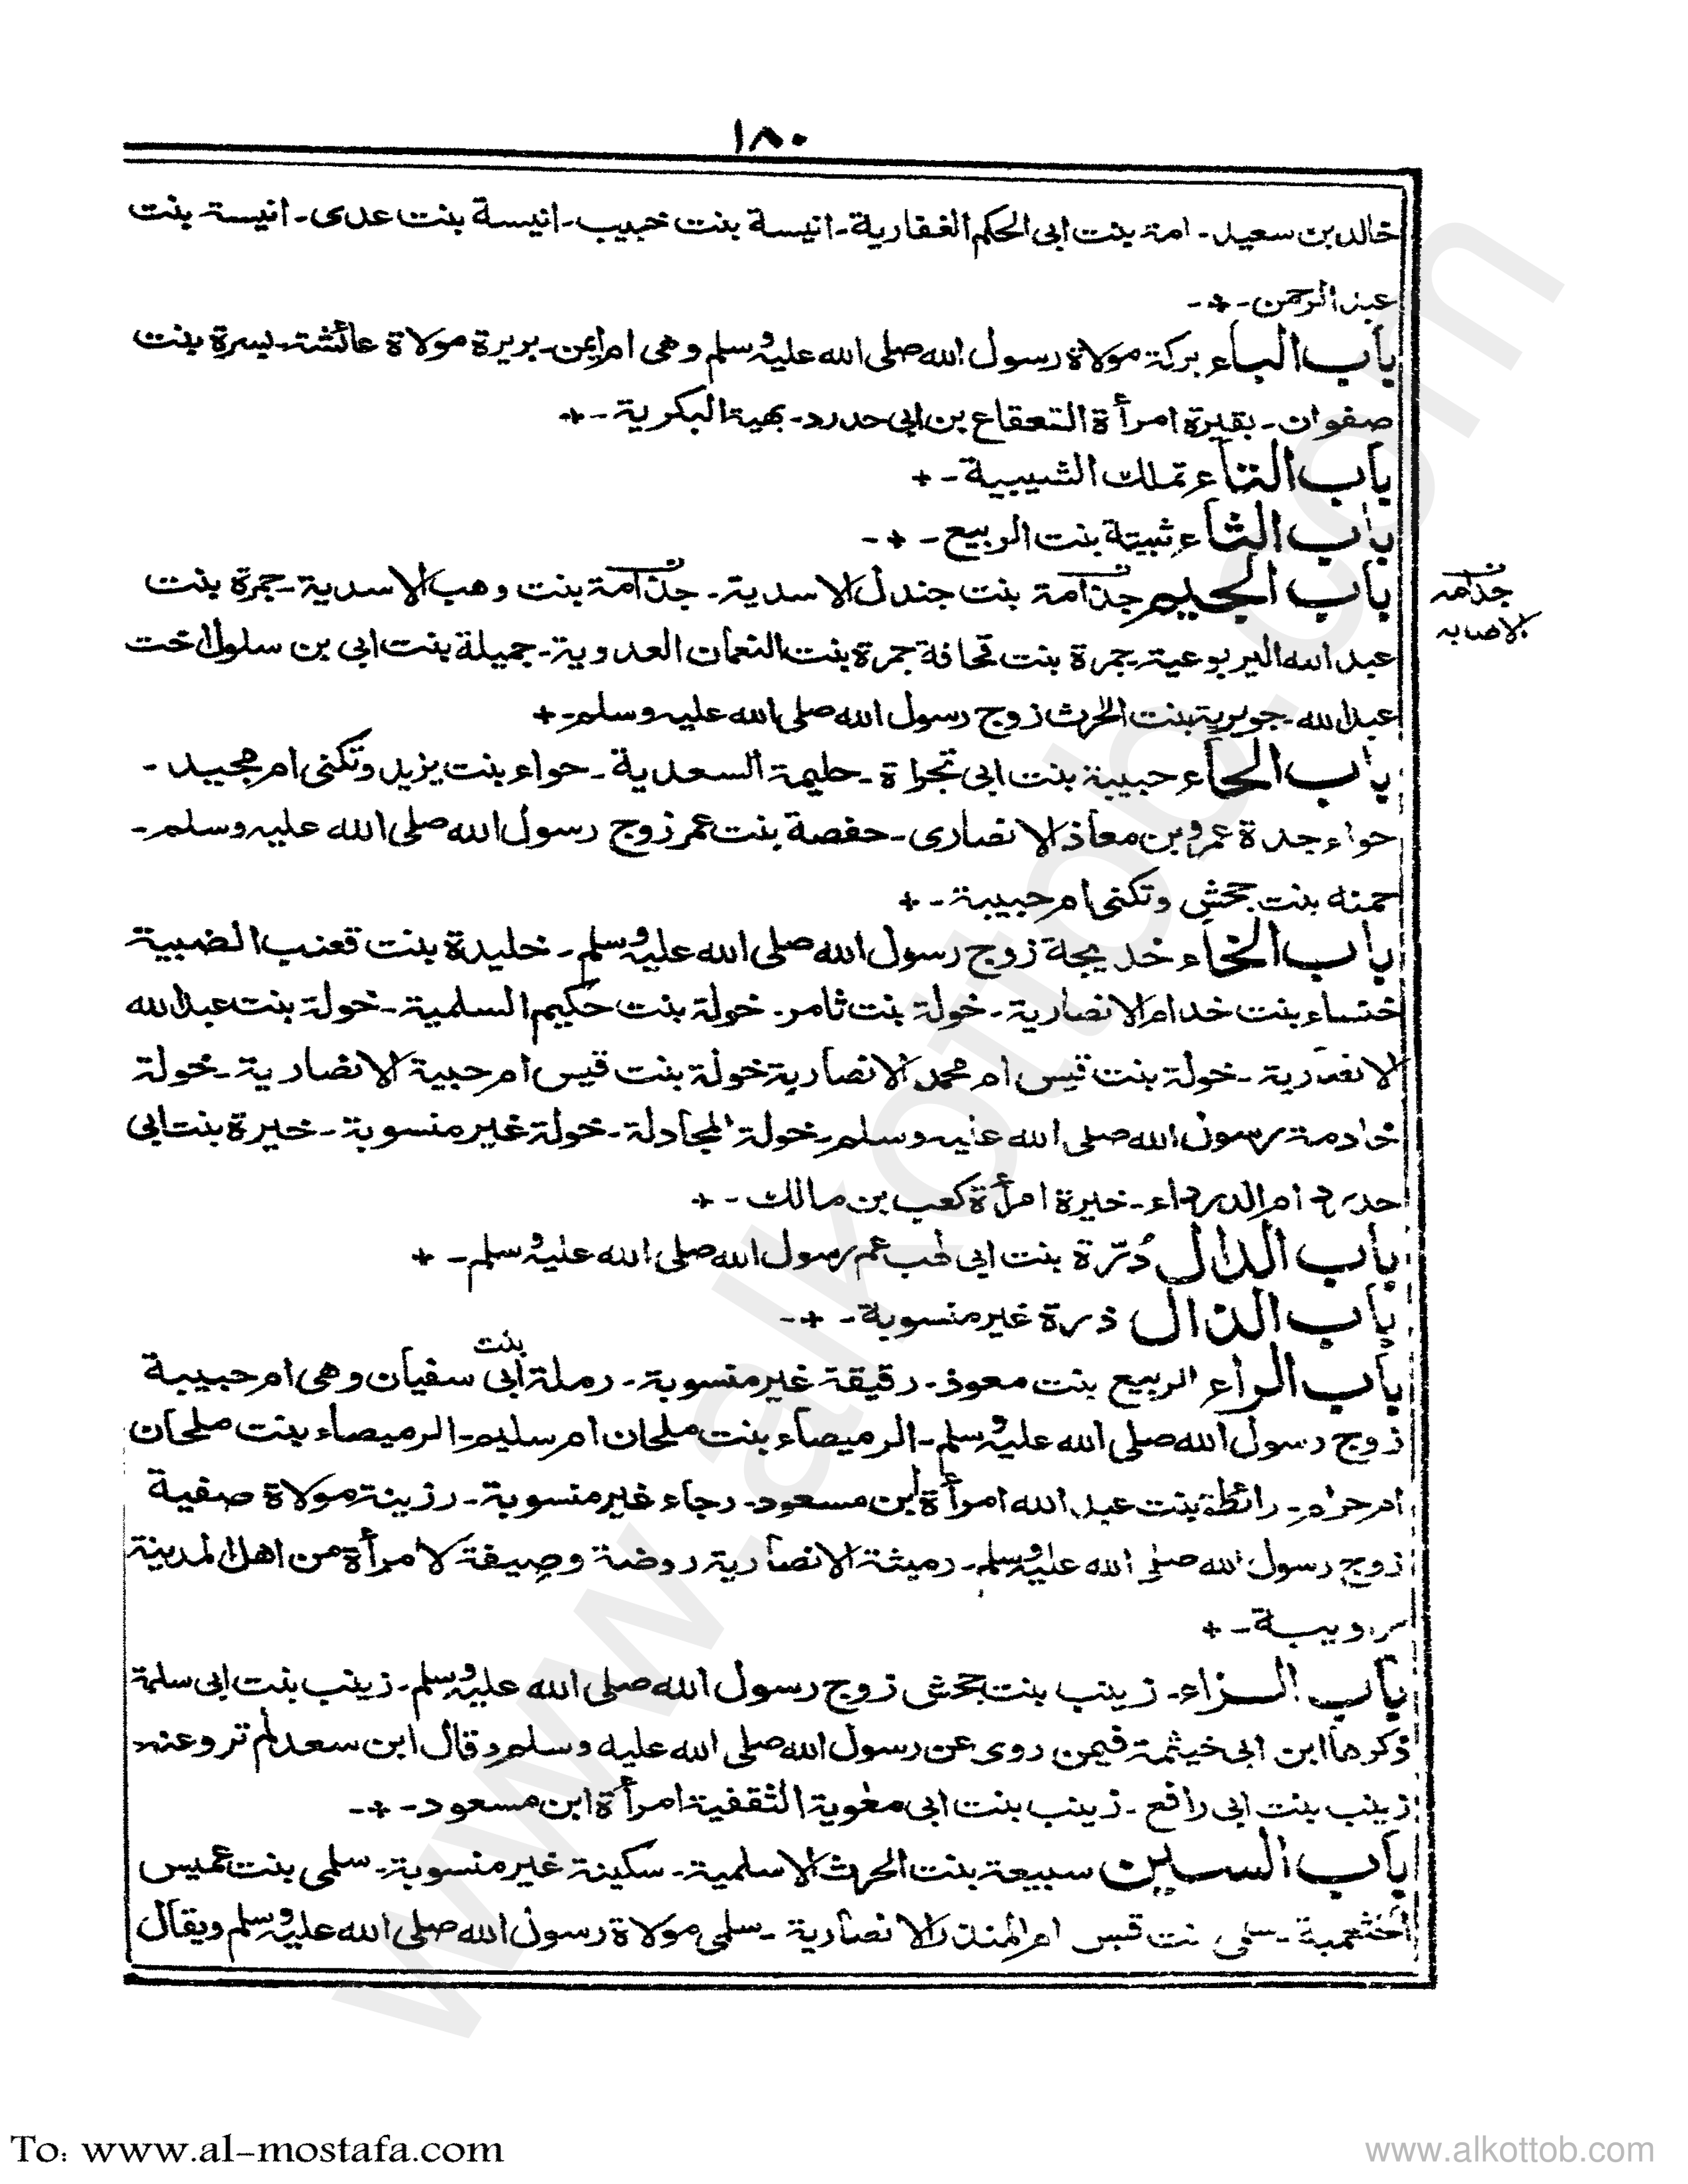 ١٨٠
خالد بن سعيد - امة بنت ابى الحكم الغفارية - انيسة بنت خبيب - انيسة بنت عدى - انيسة بنت
عبد الرحمن - + -
باب الباء بركة مولاة رسول الله صلى الله عليه وسلم وهى ام ايمن - بريرة مولاة عائشة - بسرة بنت
صفوان - بقيرة امرأة القعقاع بن ابى حدرد - بهية البكرية - +
باب التاء تملك الشيبية - +
باب الثاء ثبيتة بنت الربيع - + -
باب الجيم جذامة بنت جندل الاسدية - جذامة بنت وهب الاسدية - جمرة بنت
جذامه
الاصابه
عبد الله اليربوعية - جمرة بنت قحافة جمرة بنت النعمان العدوية - جميلة بنت ابى بن سلول اخت
عبد الله - جويرية بنت الحرث زوج رسول الله صلى الله عليه وسلم - +
باب الحاء حبيبة بنت ابى تجراة - حليمة السعدية - حواء بنت يزيد وتكنى ام مجيد -
حواء جدة عمرو بن معاذ الانصارى - حفصة بنت عمر زوج رسول الله صلى الله عليه وسلم -
حمنه بنت جحش وتكنى ام حبيبة - +
باب الخاء خديجة زوج رسول الله صلى الله عليه وسلم - خليدة بنت قعنب الضبية
خنساء بنت خدام الانصارية - خولة بنت ثامر - خولة بنت حكيم السلمية - خولة بنت عبد الله
الانصارية - خولة بنت قيس ام محمد الانصارية خولة بنت قيس ام حبيبة الانصارية - خولة
خادمة رسول الله صلى الله عليه وسلم - خولة المجادلة - خولة غير منسوبة - خيرة بنت ابى
حدرد ام الدرداء - خيرة امرأة كعب بن مالك - +
باب الدال دُرّة بنت ابى لهب عم رسول الله صلى الله عليه وسلم - +
باب الذال ذرة غير منسوبة - + -
باب الراء الربيع بنت معوذ - رقيقة غير منسوبة - رملة بنت ابى سفيان وهى ام حبيبة
زوج رسول الله صلى الله عليه وسلم - الرميصاء بنت ملحان ام سليم - الرميصاء بنت ملحان
ام حرام - رائطة بنت عبد الله امرأة ابن مسعود - رجاء غير منسوبة - رزينة مولاة صفية
زوج رسول الله صلى الله عليه وسلم - رميثة الانصارية روضة وصيفة لامرأة من اهل المدينة
رويبة - +
باب الزاء - زينب بنت جحش زوج رسول الله صلى الله عليه وسلم - زينب بنت ابى سلمة
ذكرها ابن ابى خيثمة فيمن روى عن رسول الله صلى الله عليه وسلم وقال ابن سعد لم ترو عنه
زينب بنت ابى رافع - زينب بنت ابى معوية الثقفية امرأة ابن مسعود - + -
باب السين سبيعة بنت الحرث الاسلمية - سكينة غير منسوبة - سلمى بنت عميس
الخثعمية - سلمى بنت قيس ام المنذر الانصارية - سلمى مولاة رسول الله صلى الله عليه وسلم ويقال
www.alkottob.com
To: www.al-mostafa.com
www.alkottob.com